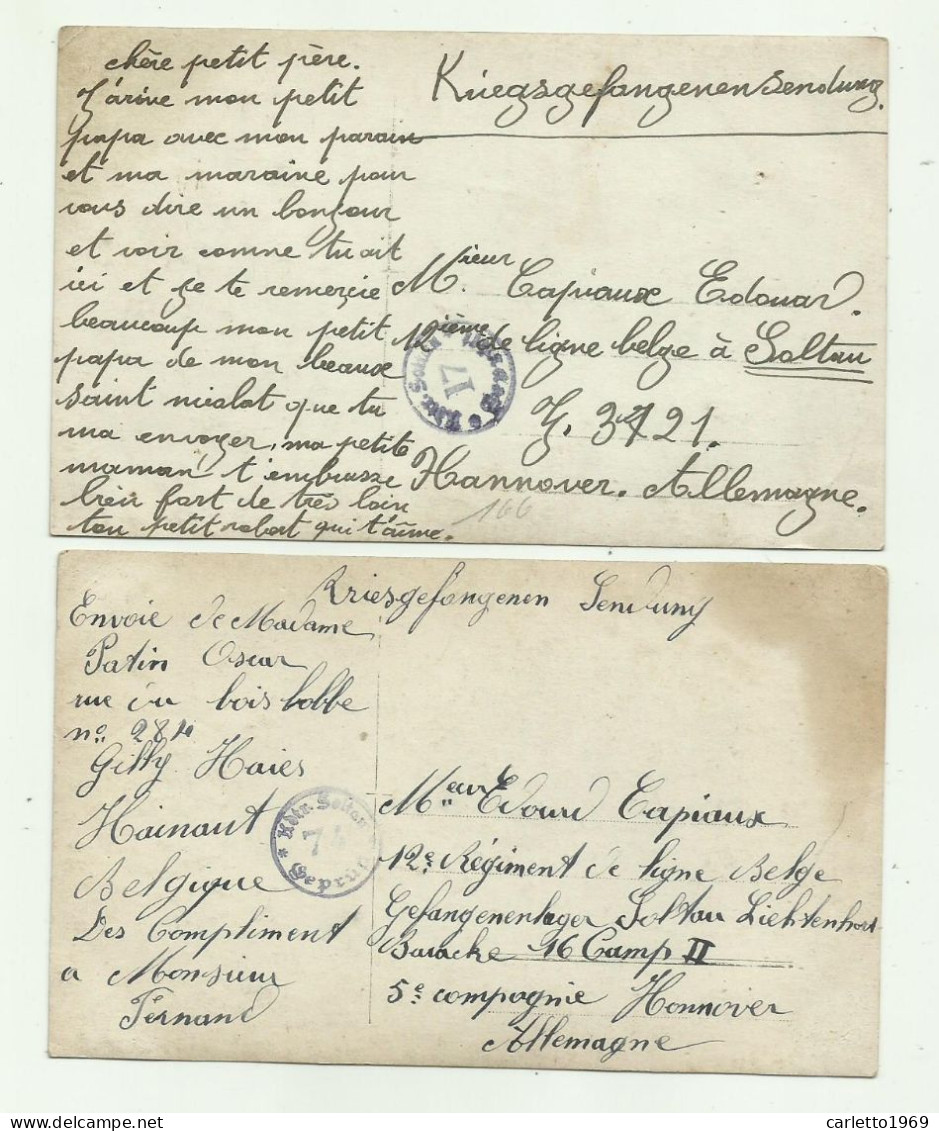 chère petit père.
J'arive mon petit
papa avec mon parain
et ma maraine pour
vous dire un bonjour
et voir comme tu ait
ici et je te remercie
beaucoup mon petit
papa de mon beaux
saint nicolat que tu
ma envoyer, ma petite
maman t'embrasse
bien fort de très loin
ton petit robert qui t'aime.
Kriegsgefangenensendung.
Mr. ieur Capiaux Edouar.
12ième de ligne belge à Soltau
3721.
Hannover. Allemagne.
166
Kdtr. Soltau
17
Geprüft
Kriesgefangenen Senduny
Envoie de Madame
Patin Oscar
rue du bois lobbe
no
Gilly Haies
Hainaut
Belgique
Des Compliment
a Monsieur
Fernand
Kdtr. Soltau
74
Geprüft
Meur Edourd Capiaux
12e Régiment de ligne Belge
Gefangenenlager Soltau Liehtenhorst
Baracke 16 Camp II
5e compagnie Honnover
Allemagne
carletto1969